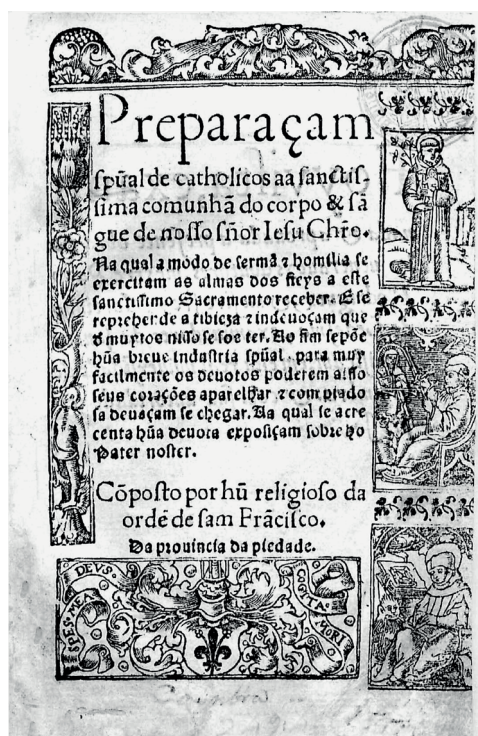 Preparaçam
spũal de catholicos aa sanctis-
sima comunhã do corpo & sã
gue de nosso sñor Iesu Chr̃o.
Na qual a modo de sermã ⁊ homilia se
exercitam as almas dos fieys a este
sanctissimo Sacramento receber. E se
reprehende a tibieza ⁊ indeuoçam que
muytos nisso se soe ter. Ao fim se põe
hũa breue industria spũal para muy
facilmente os deuotos poderem a isso
seus corações aparelhar ⁊ com piado
sa deuaçam se chegar. Na qual se acre
centa hũa deuota exposiçam sobre ho
Pater noster.
Cõposto por hũ religioso da
ordẽ de sam Frãcisco.
Da prouincia da piedade.
SPES MEA DEVS. COGITA MORI
Coimbra